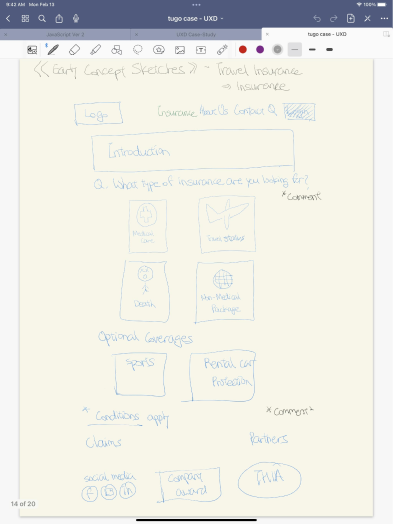 9:43 AM Mon Feb 13
100%
tugo case - UXD
JavaScript Ver 2
UXD Case-Study
tugo case - UXD
<< Early Concept Sketches >> - Travel Insurance
⇒ Insurance
Logo
Insurance About Us Contact Q
Introduction
Q. What type of insurance are you looking for?
* Comment
Medical
Death
Non-Medical
Package
Optional Coverages
Sports
Rental car
Protection
* Conditions apply
* Comment
Claims
Partners
social media
f
in
Company
award
THIA
14 of 20